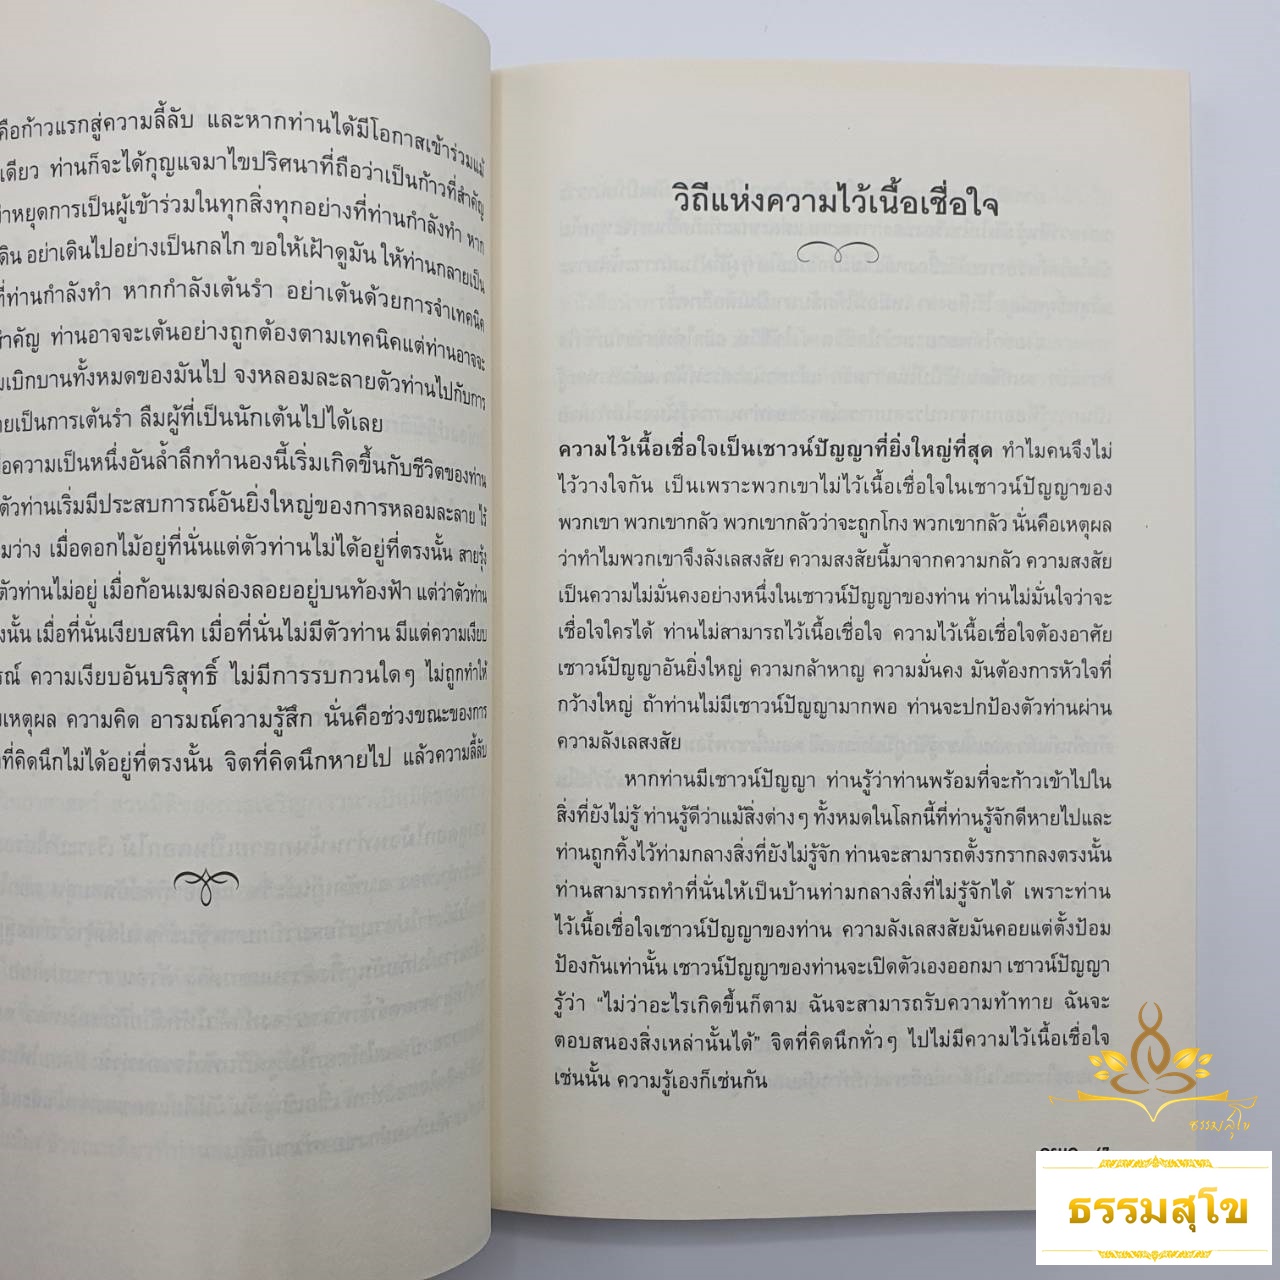 คือก้าวแรกสู่ความลี้ลับ และหากท่านได้มีโอกาสเข้าร่วมแม้
เดียว ท่านก็จะได้กุญแจมาไขปริศนาที่ถือว่าเป็นก้าวที่สำคัญ
หยุดการเป็นผู้เข้าร่วมในทุกสิ่งทุกอย่างที่ท่านกำลังทำ หาก
ดิน อย่าเดินไปอย่างเป็นกลไก ขอให้เฝ้าดูมัน ให้ท่านกลายเป็น
ที่ท่านกำลังทำ หากกำลังเต้นรำ อย่าเต้นด้วยการจำเทคนิค
สำคัญ ท่านอาจจะเต้นอย่างถูกต้องตามเทคนิคแต่ท่านอาจจะ
เบิกบานทั้งหมดของมันไป จงหลอมละลายตัวท่านไปกับการ
ายเป็นการเต้นรำ ลืมผู้ที่เป็นนักเต้นไปได้เลย
อความเป็นหนึ่งอันล้ำลึกทำนองนี้เริ่มเกิดขึ้นกับชีวิตของท่าน
ตัวท่านเริ่มมีประสบการณ์อันยิ่งใหญ่ของการหลอมละลาย ไร้
มว่าง เมื่อดอกไม้อยู่ที่นั่นแต่ตัวท่านไม่ได้อยู่ที่ตรงนั้น สายรุ้ง
ตัวท่านไม่อยู่ เมื่อก้อนเมฆล่องลอยอยู่บนท้องฟ้า แต่ว่าตัวท่าน
งนั้น เมื่อที่นั่นเงียบสนิท เมื่อที่นั่นไม่มีตัวท่าน มีแต่ความเงียบ
รณ์ ความเงียบอันบริสุทธิ์ ไม่มีการรบกวนใดๆ ไม่ถูกทำให้
เหตุผล ความคิด อารมณ์ความรู้สึก นั่นคือช่วงขณะของการ
ที่คิดนึกไม่ได้อยู่ที่ตรงนั้น จิตที่คิดนึกหายไป แล้วความลี้ลับ
วิถีแห่งความไว้เนื้อเชื่อใจ
ความไว้เนื้อเชื่อใจเป็นเชาวน์ปัญญาที่ยิ่งใหญ่ที่สุด ทำไมคนจึงไม่
ไว้วางใจกัน เป็นเพราะพวกเขาไม่ไว้เนื้อเชื่อใจในเชาวน์ปัญญาของ
พวกเขา พวกเขากลัว พวกเขากลัวว่าจะถูกโกง พวกเขากลัว นั่นคือเหตุผล
ว่าทำไมพวกเขาจึงลังเลสงสัย ความสงสัยนี้มาจากความกลัว ความสงสัย
เป็นความไม่มั่นคงอย่างหนึ่งในเชาวน์ปัญญาของท่าน ท่านไม่มั่นใจว่าจะ
เชื่อใจใครได้ ท่านไม่สามารถไว้เนื้อเชื่อใจ ความไว้เนื้อเชื่อใจต้องอาศัย
เชาวน์ปัญญาอันยิ่งใหญ่ ความกล้าหาญ ความมั่นคง มันต้องการหัวใจที่
กว้างใหญ่ ถ้าท่านไม่มีเชาวน์ปัญญามากพอ ท่านจะปกป้องตัวท่านผ่าน
ความลังเลสงสัย
หากท่านมีเชาวน์ปัญญา ท่านรู้ว่าท่านพร้อมที่จะก้าวเข้าไปใน
สิ่งที่ยังไม่รู้ ท่านรู้ดีว่าแม้สิ่งต่างๆ ทั้งหมดในโลกนี้ที่ท่านรู้จักดีหายไปและ
ท่านถูกทิ้งไว้ท่ามกลางสิ่งที่ยังไม่รู้จัก ท่านจะสามารถตั้งรกรากลงตรงนั้น
ท่านสามารถทำที่นั่นให้เป็นบ้านท่ามกลางสิ่งที่ไม่รู้จักได้ เพราะท่าน
ไว้เนื้อเชื่อใจเชาวน์ปัญญาของท่าน ความลังเลสงสัยมันคอยแต่ตั้งป้อม
ป้องกันเท่านั้น เชาวน์ปัญญาของท่านจะเปิดตัวเองออกมา เชาวน์ปัญญา
รู้ว่า “ไม่ว่าอะไรเกิดขึ้นก็ตาม ฉันจะสามารถรับความท้าทาย ฉันจะ
ตอบสนองสิ่งเหล่านั้นได้” จิตที่คิดนึกทั่วๆ ไปไม่มีความไว้เนื้อเชื่อใจ
เช่นนั้น ความรู้เองก็เช่นกัน
ธรรมสุโข
ธรรมสุโข